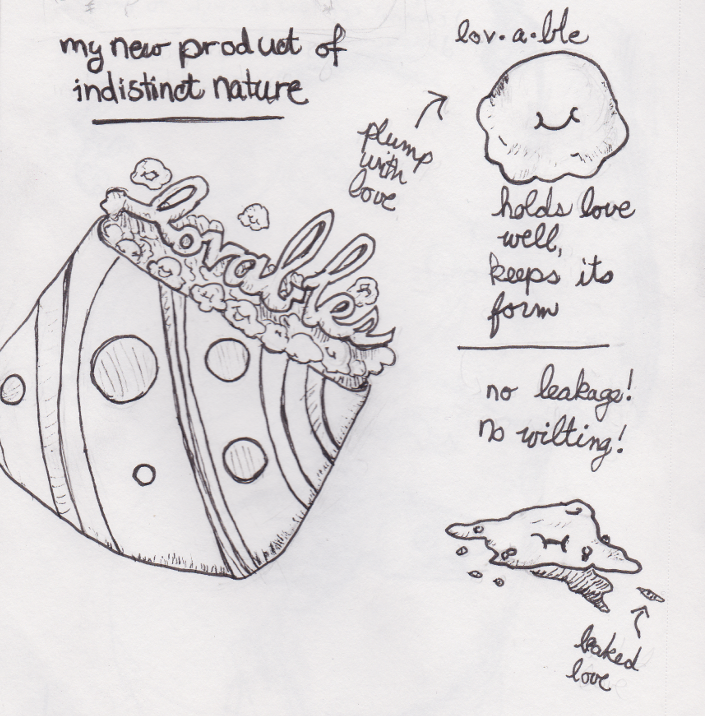 my new product of
indistinct nature
lovables
plump
with
love
lov·a·ble
holds love
well,
keeps its
form
no leakage!
no wilting!
leaked
love